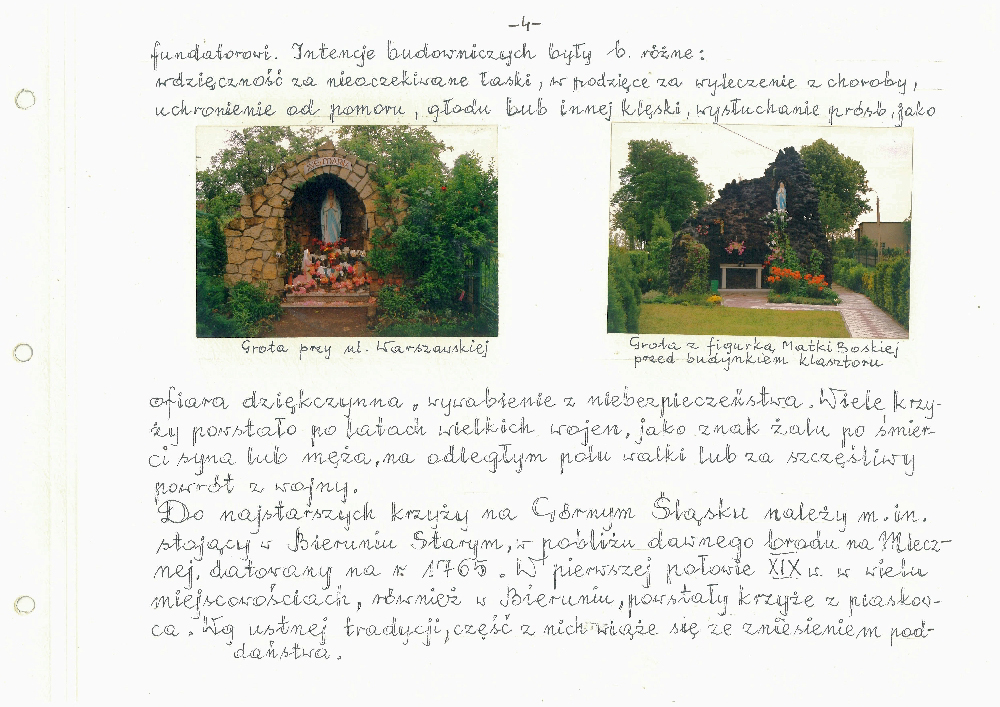 -4-
fundatorowi. Intencje budowniczych były b. różne:
wdzięczność za nieoczekiwane łaski, w podzięce za wyleczenie z choroby,
uchronienie od pomoru, głodu lub innej klęski, wysłuchanie próśb, jako
AVE MARIA
Grota przy ul. Warszawskiej
Grota z figurką Matki Boskiej
przed budynkiem klasztoru
ofiara dziękczynna, wywabienie z niebezpieczeństwa. Wiele krzy-
ży powstało po latach wielkich wojen, jako znak żalu po śmier-
ci syna lub męża, na odległym polu walki lub za szczęśliwy
powrót z wojny.
Do najstarszych krzyży na Górnym Śląsku należy m. in.
stojący w Bieruniu Starym, w pobliżu dawnego brodu na Mlecz-
nej, datowany na r. 1765. W pierwszej połowie XIX w. w wielu
miejscowościach, również w Bieruniu, powstały krzyże z piaskow-
ca. Wg ustnej tradycji, część z nich wiąże się ze zniesieniem pod-
daństwa.